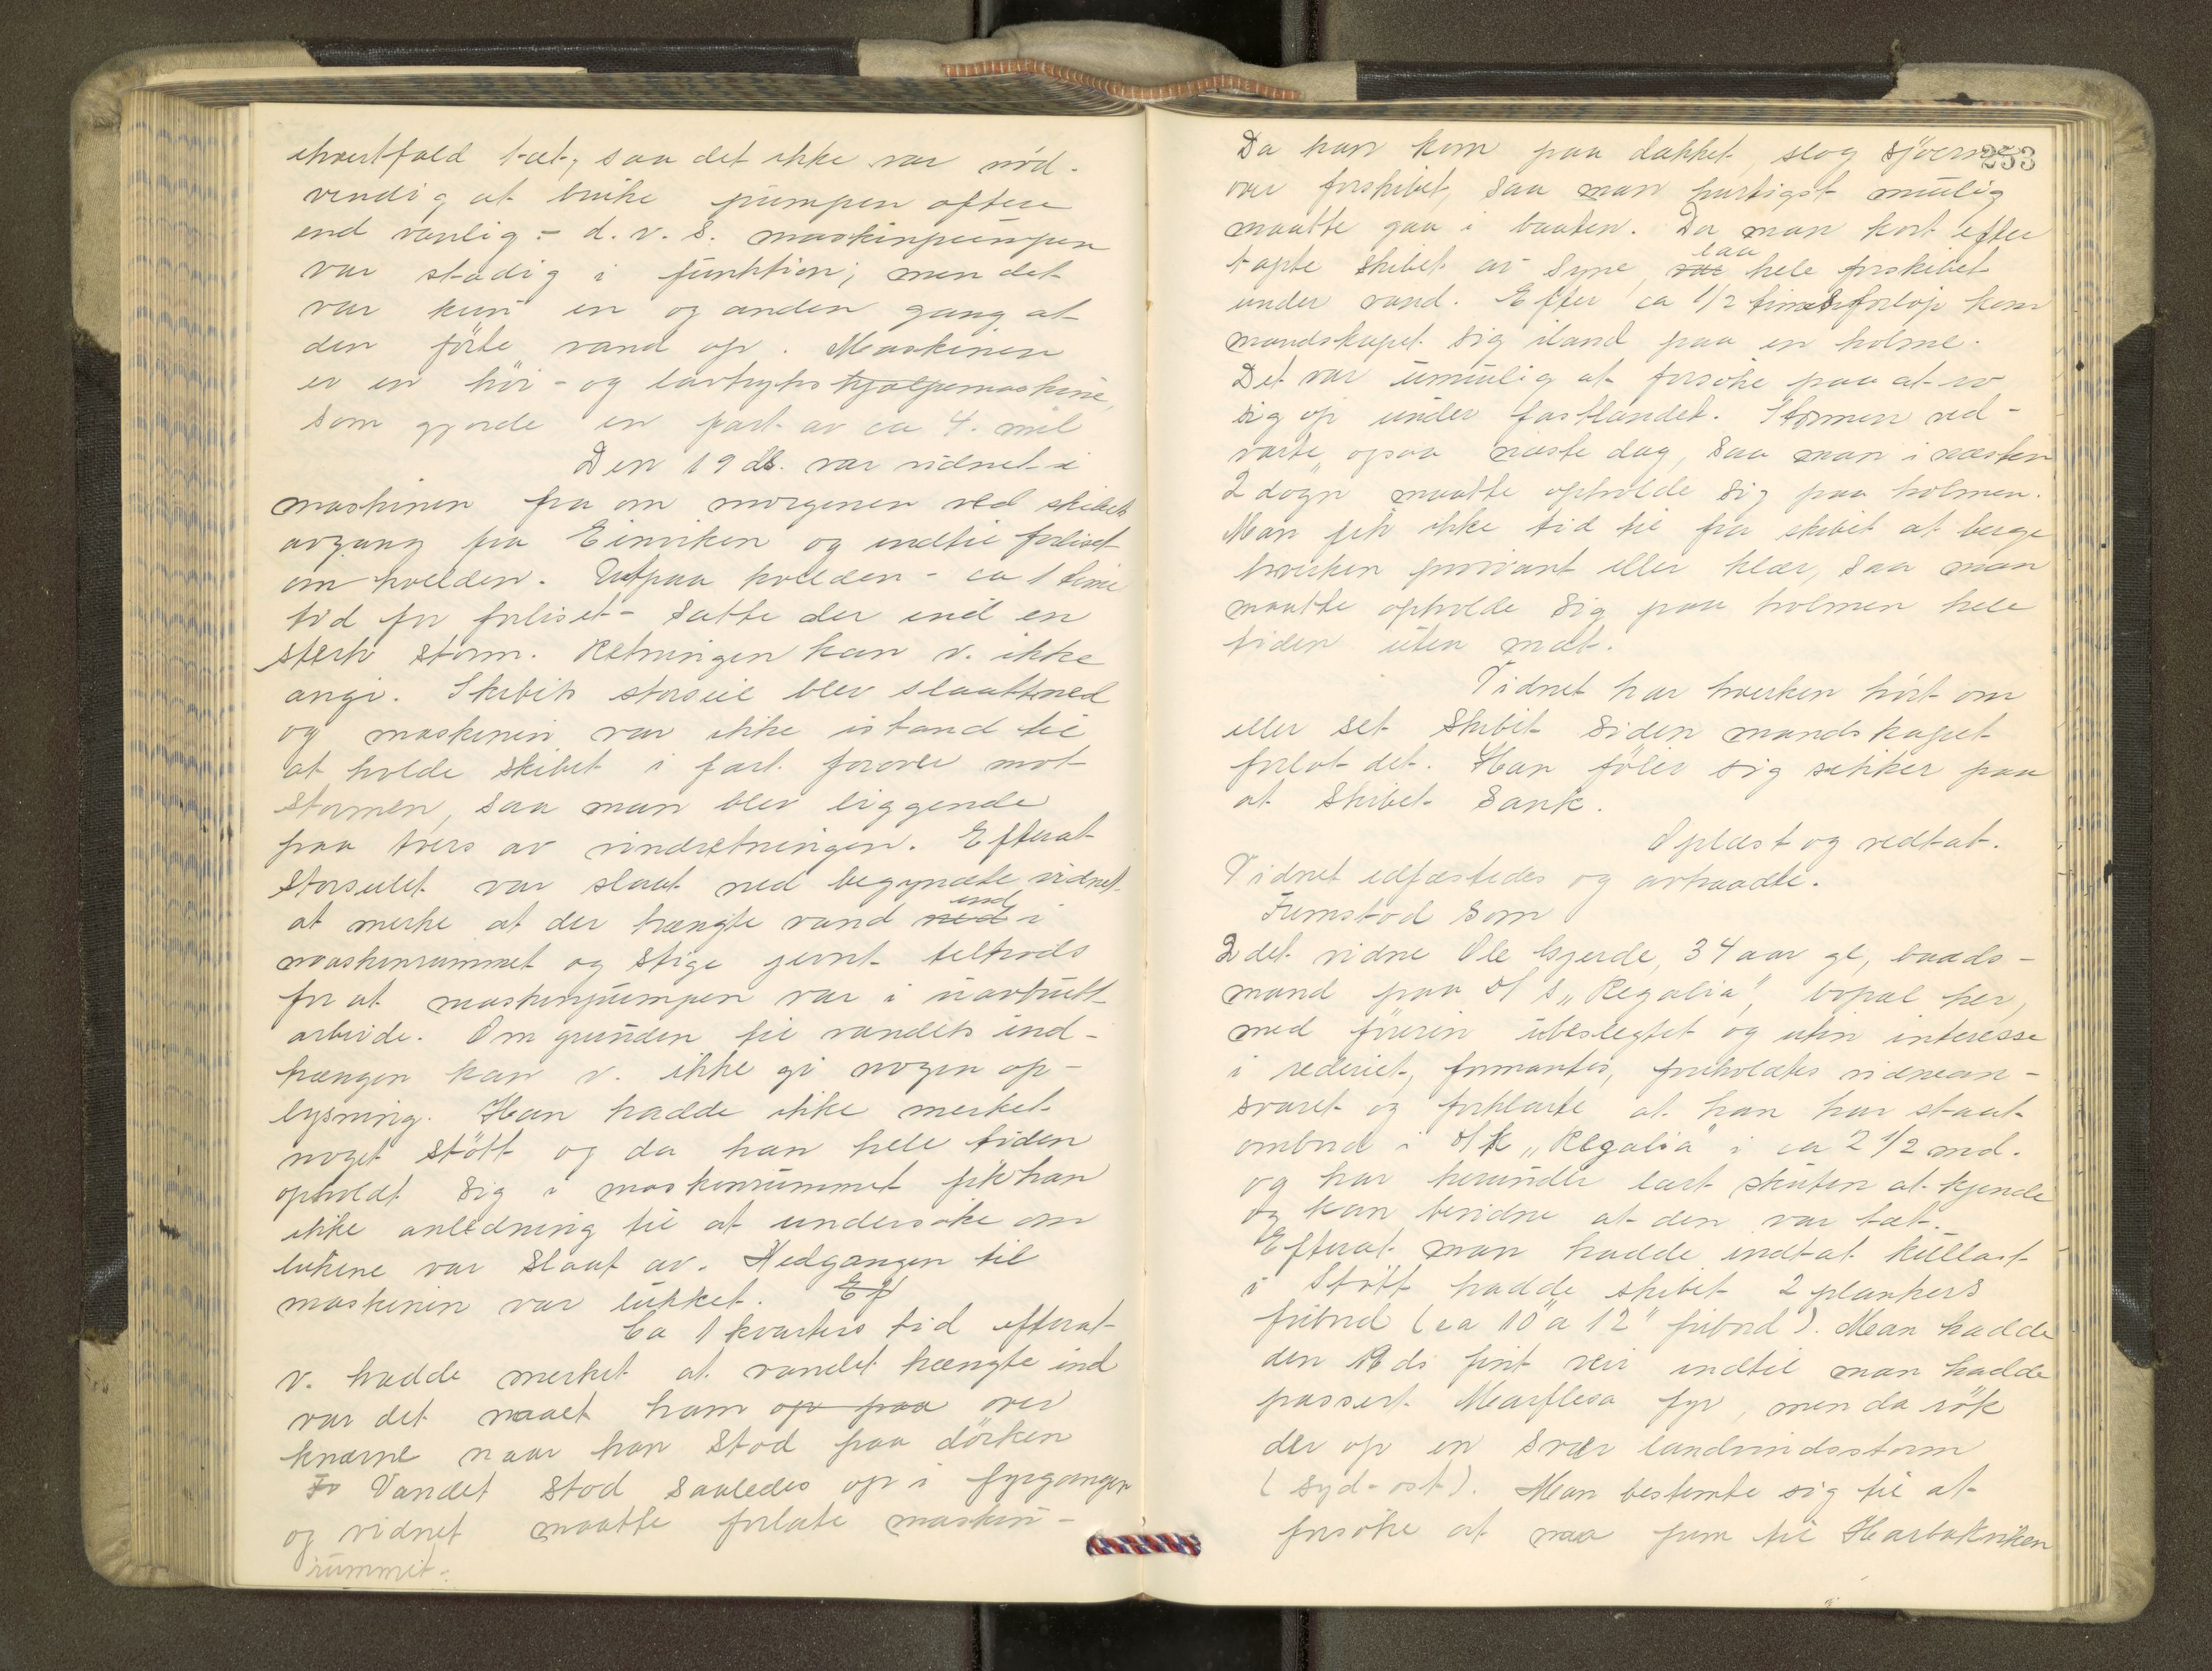 ihvertfald tæt, saa det ikke var nød-
vendig at bruke pumpen oftere
end vanlig - d.v.s. maskinpumpen
var stadig i funktion; men det
var kun en og anden gang at
den förte vand op. Maskinen
er en höi- og lavtryks hjælpemaskine,
som gjorde en fart av ca 4. mil
Den 19 ds. var vidnet i
maskinen fra om morgenen ved skibets
avgang fra Einviken og indtil forliset
om kvelden. Utpaa kvelden - ca 1 time
tid før forliset - satte der ind en
sterk storm. Retningen kan v. ikke
angi. Skibets storseil blev slaat ned
og maskinen var ikke istand til
at holde skibet i fart forover mot
stormen, saa man blev liggende
paa tvers av vindretningen. Efterat
storseilet var slaat ned begyndte vidnet
at merke at der trængte vand ned ind i
maskinrummet og stige jevnt tiltrods
for at maskinpumpen var i uavbrutt
arbeide. Om grunden til vandets ind-
trængen kan v. ikke gi nogen op-
lysning. Han hadde ikke merket
noget stött og da han hele tiden
opholdt sig i maskinrummet fik han
ikke anledning til at undersøke om
lukene var slaat av. Nedgangen til
maskinen var lukket. Ef
Ca 1 kvarters tid efterat
v. hadde merket at vandet trængte ind
var det naaet ham op paa over
knærne naar han stod paa dörken
Fo Vandet stod saaledes op i fyrgangen
og vidnet maatte forlate maskin-
rummet.
253
Da han kom paa dækket, slog sjöerne
over forskibet, saa man hurtigst mulig
maatte gaa i baaten. Da man kort efter
tapte skibet av syne, var laa hele forskibet
under vand. Efter ca 1/2 times forløp kom
mandskapet sig iland paa en holme.
Det var umulig at forsøke paa at ro
sig op under fastlandet. Stormen ved-
varte ogsaa næste dag, saa man i næsten
2 døgn maatte opholde sig paa holmen.
Man fik ikke tid til fra skibet at berge
hverken proviant eller klær, saa man
maatte opholde sig paa holmen hele
tiden uten mat.
Vidnet har hverken hört om
eller set skibet siden mandskapet
forlot det. Han föler sig sikker paa
at skibet sank.
Oplæst og vedtat.
Vidnet edfæstedes og avtraadte.
Fremstod som
2det vidne Ole Gjerde, 34 aar gl, baads-
mand paa d/s „Regalia", bopæl her,
med föreren ubeslegtet og uten interesse
i rederiet, formantes, foreholdtes vidnean-
svaret og forklarte at han har staat
ombord i d/k „Regalia" i ca 2 1/2 md.
og har herunder lært skuten at kjende
og kan bevidne at den var tæt.
Efterat man hadde indtat kullast
i Stött hadde skibet 2 plankers
fribord (ca 10" a 12" fribord). Man hadde
den 19 ds fint veir indtil man hadde
passert Mearflesa fyr, men da rök
der op en svær landvindsstorm
(syd-ost). Man bestemte sig til at
forsöke at naa frem til Harbakviken